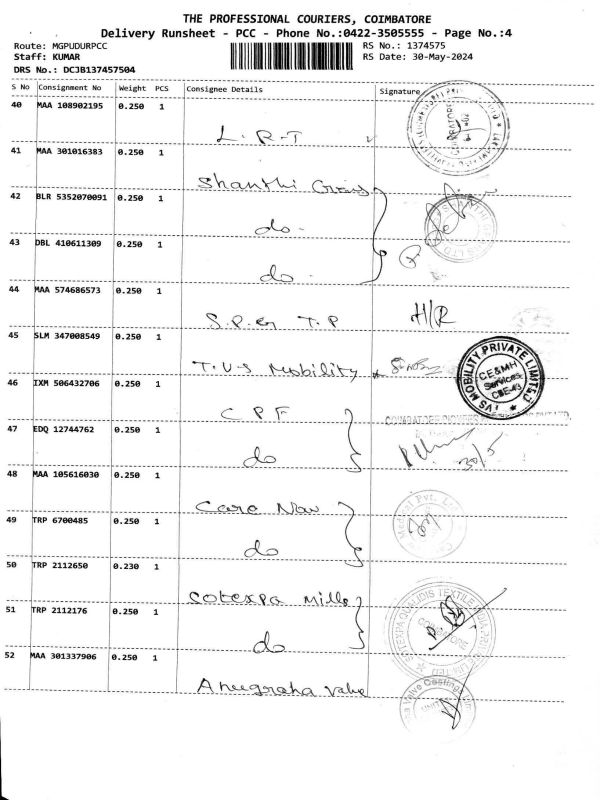 THE PROFESSIONAL COURIERS, COIMBATORE
Delivery Runsheet - PCC - Phone No.:0422-3505555 - Page No.:4
Route: MGPUDURPCC
RS No.: 1374575
Staff: KUMAR
RS Date: 30-May-2024
DRS No.: DCJB137457504
S No Consignment No Weight PCS Consignee Details Signature
40 MAA 108902195 0.250 1
L.R.T
41 MAA 301016383 0.250 1
Shanthi Grays
42 BLR 5352070091 0.250 1
do
43 DBL 410611309 0.250 1
do
44 MAA 574686573 0.250 1
S.P. T.P H/R
45 SLM 347008549 0.250 1
T.V.S Mobility
VS MOBILITY PRIVATE LIMITED
CE&MH
Services
CBE-43
46 IXM 506432706 0.250 1
CPF
47 EDQ 12744762 0.250 1
do 30/5
48 MAA 105616030 0.250 1
Care Now
Medical Pvt.
49 TRP 6700485 0.250 1
do
50 TRP 2112650 0.230 1
Cotexpa Mills
51 TRP 2112176 0.250 1
do
52 MAA 301337906 0.250 1
Anugraha Valve
Valve Castings